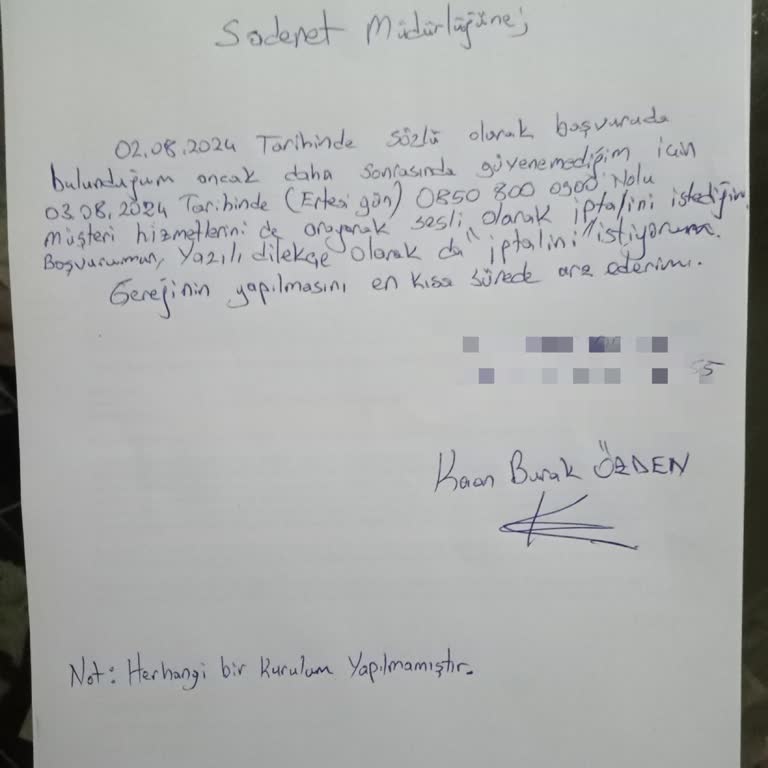 Sadenet Müdürlüğüne;
02.08.2024 Tarihinde sözlü olarak başvuruda
bulunduğum ancak daha sonrasında güvenemediğim için
03.08.2024 Tarihinde (Ertesi gün) 0850 800 0900 Nolu
müşteri hizmetlerini de arayarak sesli olarak iptalini istediğim
Başvurumun, Yazılı dilekçe olarak da "iptalini" istiyorum.
Gereğinin yapılmasını en kısa sürede arz ederim.
55
Kaan Burak ÖZDEN
Not: Herhangi bir kurulum Yapılmamıştır.